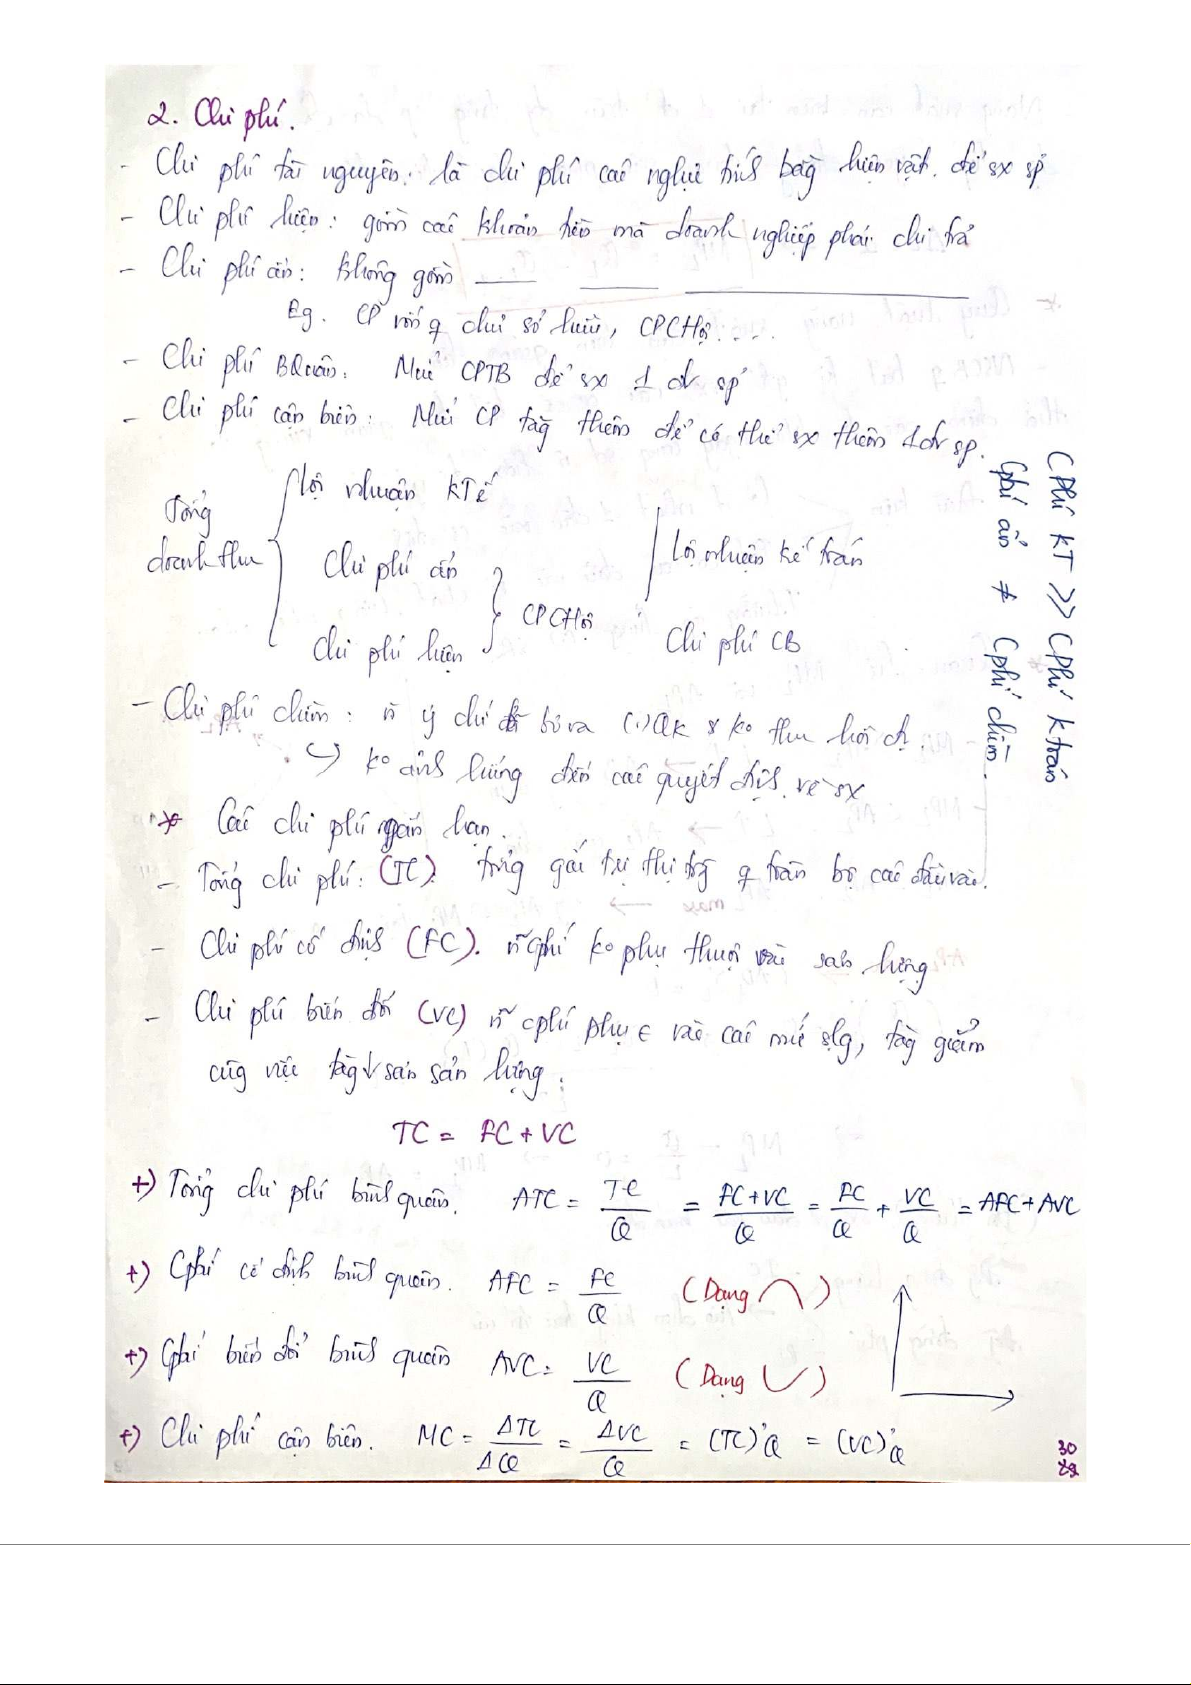 2. Chi phí.
- Chi phí tài nguyên: là chi phí các nguồn bằg hiện vật. để sx sp
- Chi phí hiện: gồm các khoản tiền mà doanh nghiệp phải chi trả
- Chi phí ẩn: không gồm
Eg. CP vốn q chủ sở hữu, CPCHội....
- Chi phí BQuân: Mức CPTB để sx 1 đv sp
- Chi phí cận biên: Mức CP tăg thêm để có thể sx thêm 1đv sp.
Tổng doanh thu
Lợi nhuận KTế
Chi phí ẩn
Chi phí hiện
CPCHội
Lợi nhuận kế toán
Chi phí CB
CPhí KT >> CPhí Ktoán
Cphí ẩn ≠ Cphí chìm.
- Chi phí chìm: bỏ ra (.) QK & ko thu hồi đc.
↪ ko ảnh hưởng đến các quyết định về sx
* Các chi phí ngắn hạn.
- Tổng chi phí: (TC). tổng giá trị thị trg q toàn bộ các đầu vào.
- Chi phí cố định (FC). cphí ko phụ thuộc vào sản lượng
- Chi phí biến đổi (VC) cphí phụ ∈ vào các mức slg, tăg giảm
cùg việc tăg↓ sản lượng.
TC = FC + VC
+) Tổng chi phí bình quân. ATC = TC/Q = FC+VC/Q = FC/Q + VC/Q = AFC + AVC
+) Cphí cố định bình quân. AFC = FC/Q (Dạng ⌒)
+) Cphí biến đổi bình quân AVC = VC/Q (Dạng ∪)
+) Chi phí cận biên. MC = ΔTC/ΔQ = ΔVC/Q = (TC)'Q = (VC)'Q
30